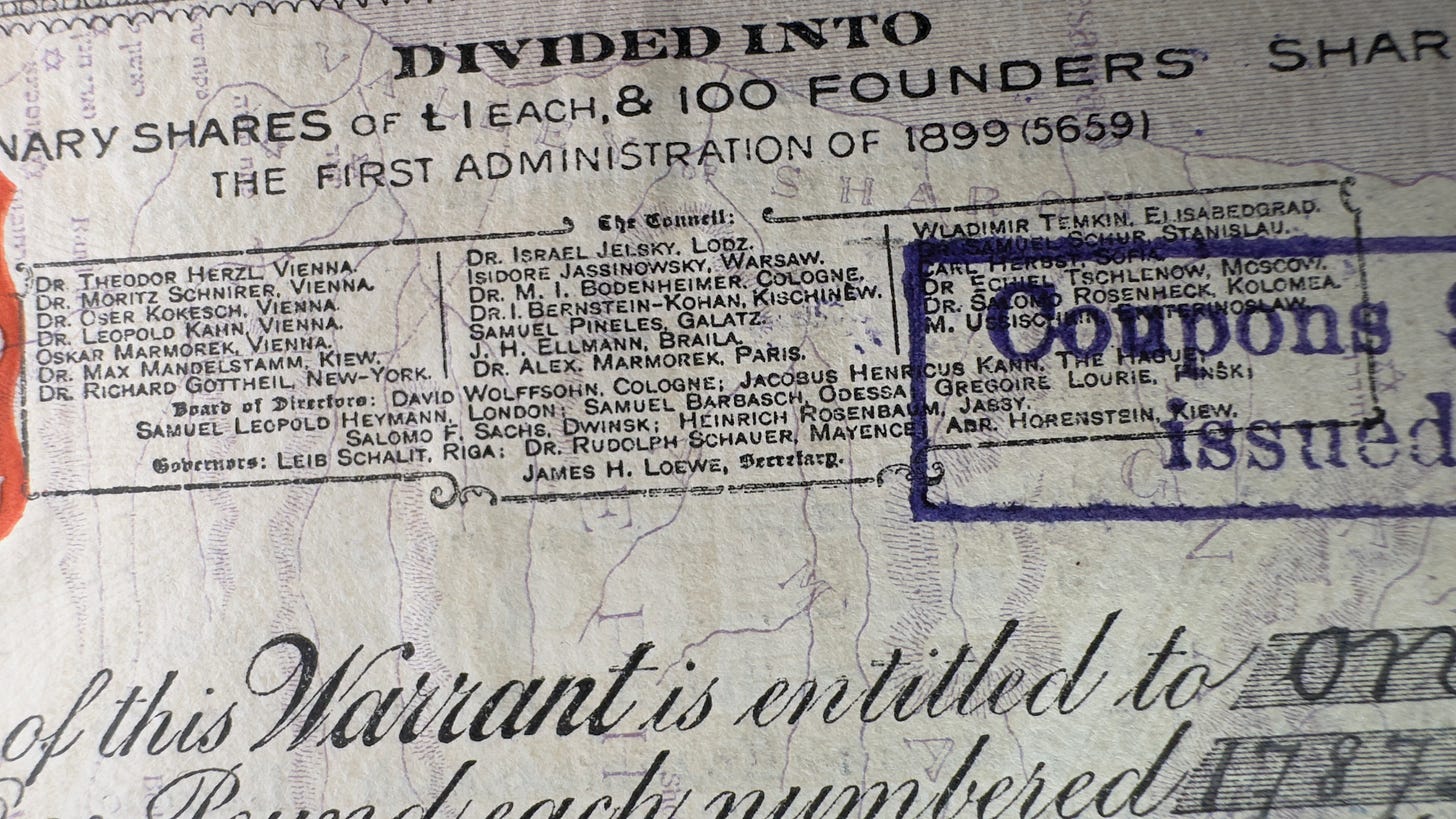 DIVIDED INTO
NARY SHARES OF £1 EACH, & 100 FOUNDERS' SHAR
THE FIRST ADMINISTRATION OF 1899 (5659)
The Council:
DR. THEODOR HERZL, VIENNA.
DR. MORITZ SCHNIRER, VIENNA.
DR. OSER KOKESCH, VIENNA.
DR. LEOPOLD KAHN, VIENNA.
OSKAR MARMOREK, VIENNA.
DR. MAX MANDELSTAMM, KIEW.
DR. RICHARD GOTTHEIL, NEW-YORK.
DR. ISRAEL JELSKY, LODZ.
ISIDORE JASSINOWSKY, WARSAW.
DR. M. I. BODENHEIMER, COLOGNE.
DR. I. BERNSTEIN-KOHAN, KISCHINEW.
SAMUEL PINELES, GALATZ.
J. H. ELLMANN, BRAILA.
DR. ALEX. MARMOREK, PARIS.
WLADIMIR TEMKIN, ELISABEDGRAD.
DR. SAMUEL SCHUR, STANISLAU.
CARL HERBST, SOFIA.
DR ECHIEL TSCHLENOW, MOSCOW.
DR. SALOMO ROSENHECK, KOLOMEA.
M. USSISCHKIN EKATERINOSLAW.
Board of Directors: DAVID WOLFFSOHN, COLOGNE; JACOBUS HENRICUS KANN, THE HAGUE;
SAMUEL LEOPOLD HEYMANN, LONDON; SAMUEL BARBASCH, ODESSA; GREGOIRE LOURIE, PINSK;
SALOMO F. SACHS, DWINSK; HEINRICH ROSENBAUM, JASSY.
Governors: LEIB SCHALIT, RIGA; DR. RUDOLPH SCHAUER, MAYENCE; ABR. HORENSTEIN, KIEW.
JAMES H. LOEWE, Secretary.
Coupons
issued
SHARON
of this Warrant is entitled to one
Pound each numbered 1787